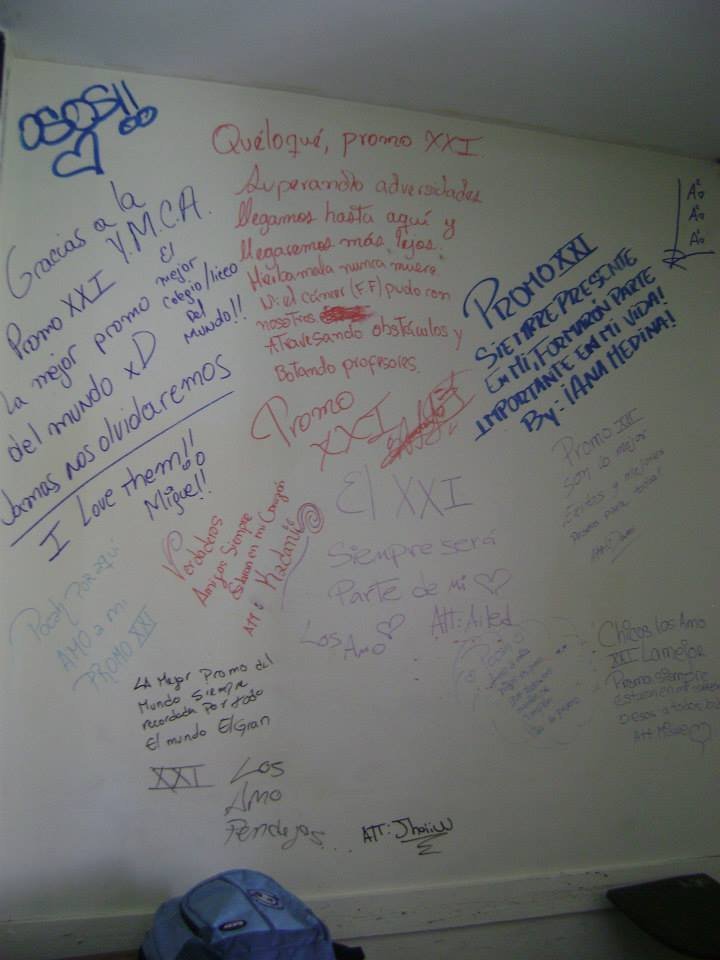 OSOS!!
Quéloqué, promo XXI
Superando adversidades
llegamos hasta aquí y
llegaremos más lejos.
Hierba mala nunca muere
Ni el cáncer (F.F) pudo con
nosotros
Atravesando obstáculos y
Botando profesores.
Promo
XXI
Gracias a la
Promo XXI Y.M.C.A.
la mejor promo
del mundo xD
El
mejor
colegio/liceo
Del
Mundo!!
Jamas nos olvidaremos
I Love them!!
Migue!!
A°
A°
A°
PROMO XXI
SIEMPRE PRESENTE
EN MI, FORMARON PARTE
IMPORTANTE EN MI VIDA!
By: IANA MEDINA!
Promo XXI
Son lo mejor
Exitos y
para todos!
Verdaderos
Amigos Siempre
Estaran en mi Corazón
Att:
El XXI
Siempre será
Parte de mi
Los Amo
Att: Ailed
por aquí
AMO a mi
PROMO XXI
LA Mejor Promo del
Mundo Siempre
recordada Por todo
El mundo El Gran
XXI Los
Amo
Pendejos...
ATT: Jhoiiw
Chicos los Amo
XXI La mejor
Promo siempre
estaran en mi
Besos a todos
Att: